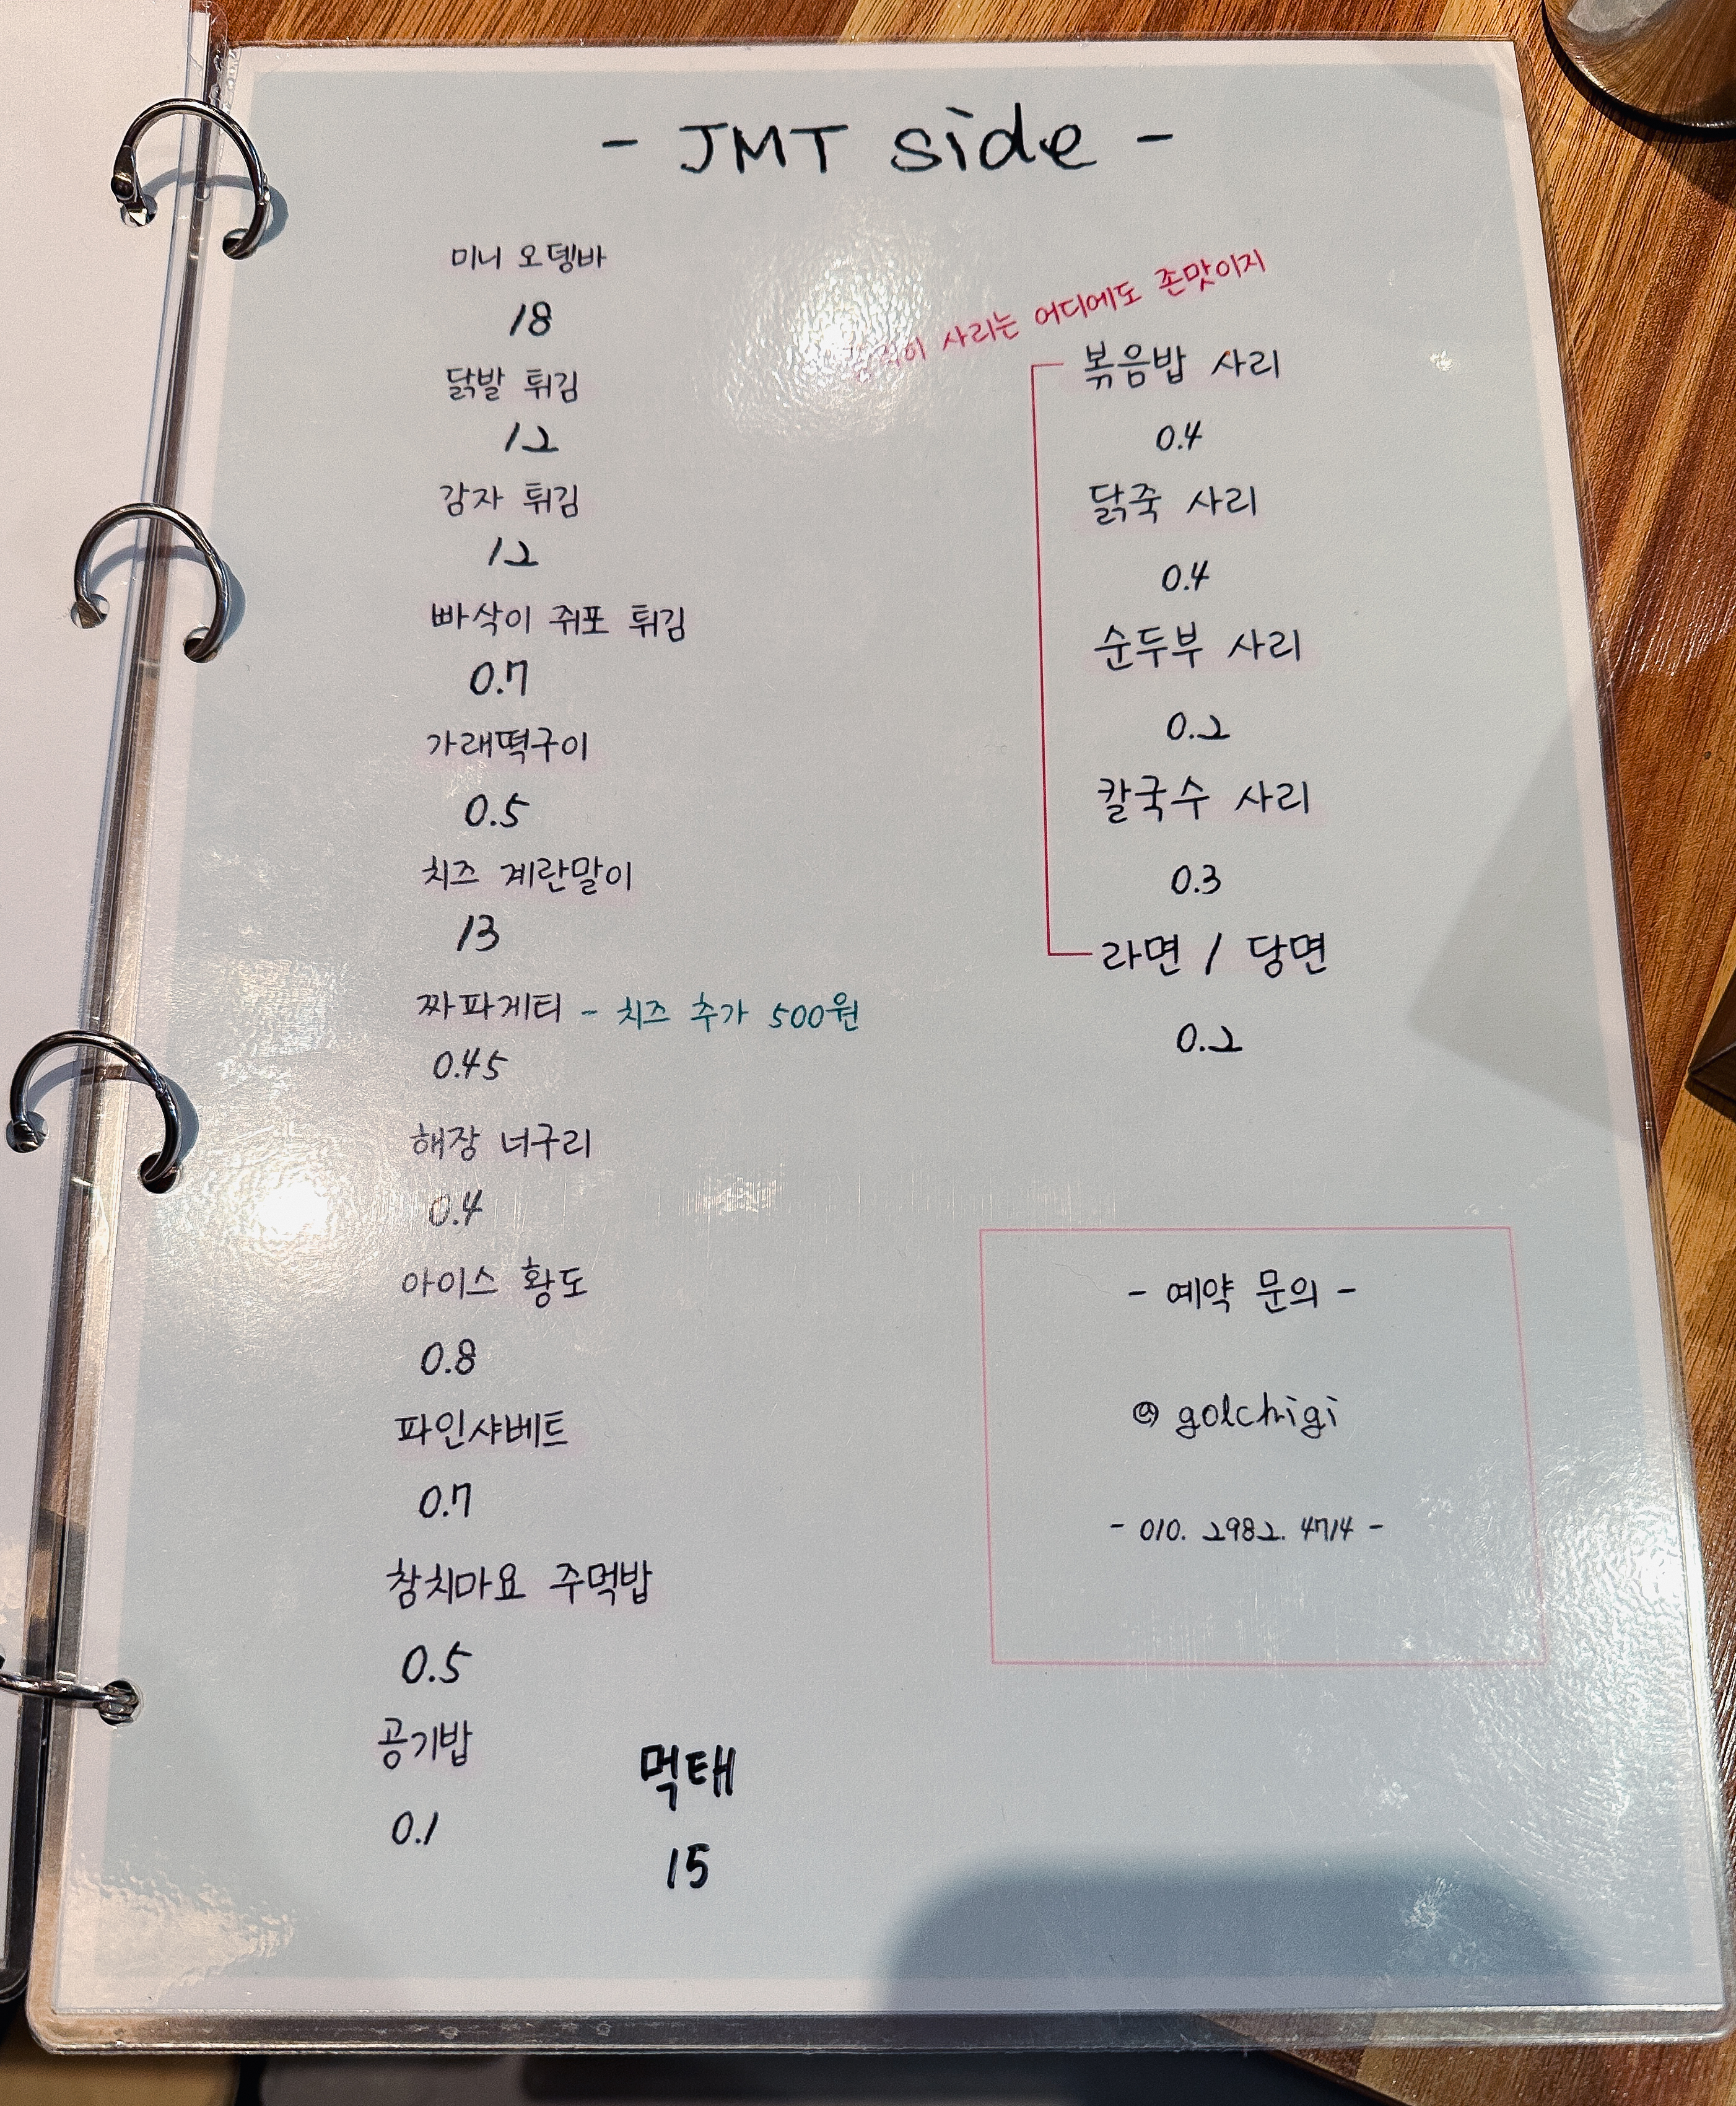 - JMT side -
미니 오뎅바
18
닭발 튀김
12
감자 튀김
12
빠삭이 쥐포 튀김
0.7
가래떡구이
0.5
치즈 계란말이
13
짜파게티 - 치즈 추가 500원
0.45
해장 너구리
0.4
아이스 황도
0.8
파인샤베트
0.7
참치마요 주먹밥
0.5
공기밥
0.1
먹태
15
사리는 어디에도 존맛이지
볶음밥 사리
0.4
닭죽 사리
0.4
순두부 사리
0.2
칼국수 사리
0.3
라면 / 당면
0.2
- 예약 문의 -
@ golchigi
- 010. 2982. 4714 -